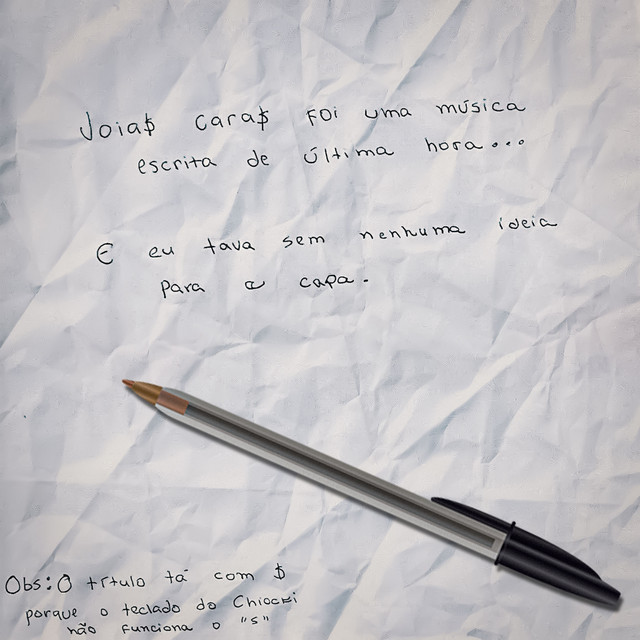 Joia$ cara$ foi uma música
escrita de última hora...
E eu tava sem nenhuma ideia
para a capa.
Obs: O título tá com $
porque o teclado do Chiocki
não funciona o "s"